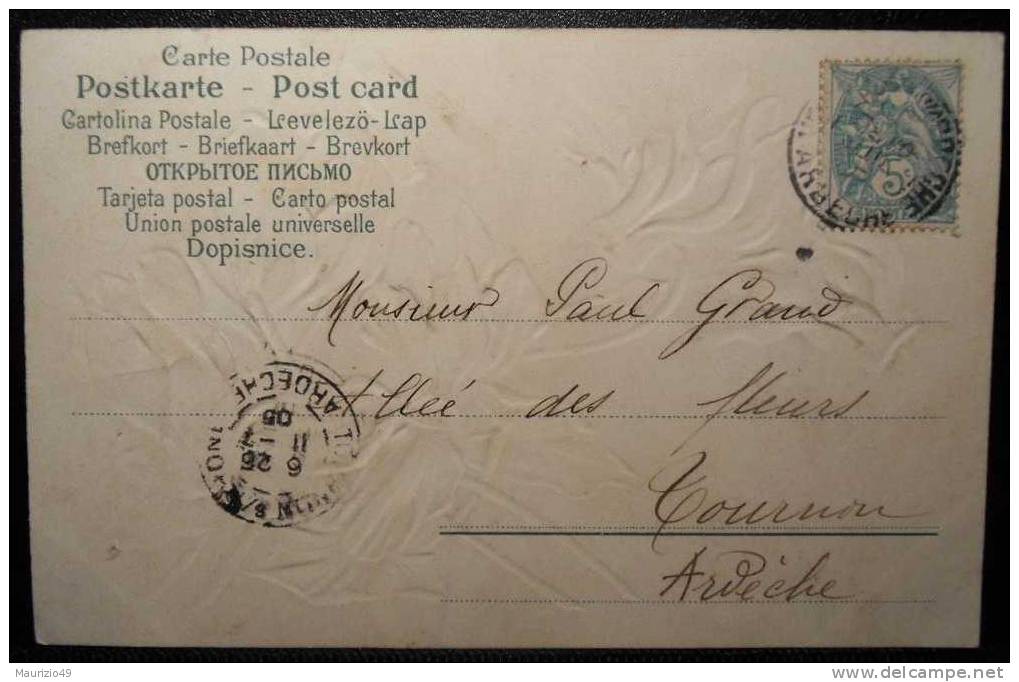 Carte Postale
Postkarte - Post card
Cartolina Postale - Levelezö-Lap
Brefkort - Briefkaart - Brevkort
ОТКРЫТОЕ ПИСЬМО
Tarjeta postal - Carto postal
Union postale universelle
Dopisnice.
5
ARDECHE
Monsieur Paul Grand
Allée des fleurs
Tournon
Ardèche
ARDECHE
05
11
26
6
Maurizio49
delcampe.net